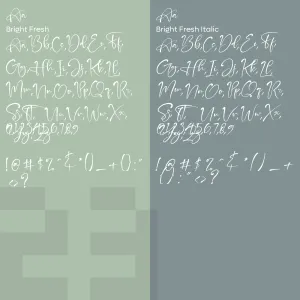 Aa
Bright Fresh
Aa, Bb, Cc, Dd, Ee, Ff,
Gg, Hh, Ii, Jj, Kk, Ll,
Mm, Nn, Oo, Pp, Qq, Rr,
Ss, Tt, Uu, Vv, Ww, Xx,
Yy, Zz
0,1,2,3,4,5,6,7,8,9
!@#$%^&*()_+{}:"
<>?
Aa
Bright Fresh Italic
Aa, Bb, Cc, Dd, Ee, Ff,
Gg, Hh, Ii, Jj, Kk, Ll,
Mm, Nn, Oo, Pp, Qq, Rr,
Ss, Tt, Uu, Vv, Ww, Xx,
Yy, Zz
0,1,2,3,4,5,6,7,8,9
!@#$%^&*()_+
{}:"<>?